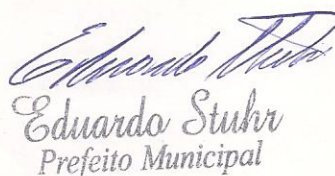 Eduardo Stuhr
Eduardo Stuhr
Prefeito Municipal